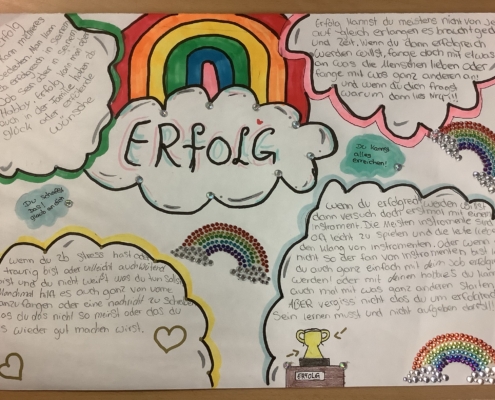 Erfolg
kann mehreres
bedeuten. Man kann
Erfolgreich in seinem
Job sein oder in seinem
Hobby. Erfolg kann man aber
auch in der Familie haben
glück oder erfüllende
wünsche
Erfolg kannst du meistens nicht von jetzt
auf gleich erlangen es braucht geduld
und Zeit, wenn du dann erfolgreich
werden willst, fange doch mit etwas
an was die Menschen lieben oder
fange mit was ganz anderen an!
und wenn du dich fragst
warum dann lies
ERFOLG
Du kannst
alles
erreichen!
Du schaffst
das!
wenn du zb stress hast oder
traurig bist oder
bist und nicht weißt was du tun sollst
Manchmal hilft es auch ganz von vorne
anzufangen oder eine nachricht zu schreiben
das du das nicht so meinst oder das du
es wieder gut machen wirst.
wenn du erfolgreich werden willst
dann versuch doch erstmal mit einem
instrument. Die Meisten instrumente sind
leicht zu spielen und die leute lieben
den klang von instrumenten. Oder wenn du
nicht so der fan von instrumenten bist kannst
du auch ganz einfach mit ein Job erfolgreich
werden! oder mit deinen hobbies du kannst
auch mal mit was ganz anderen Starten
ABER vergiss nicht das du um erfolgreich zu
Sein lernen musst und nicht aufgeben darfst!
ERFOLG